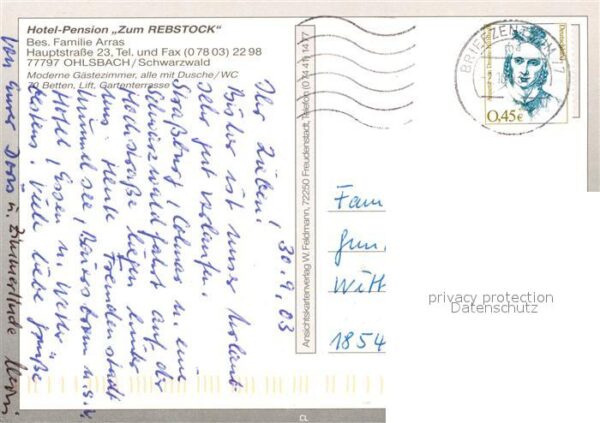 Hotel-Pension „Zum REBSTOCK“
Bes. Familie Arras
Hauptstraße 23, Tel. und Fax (0 78 03) 22 98
77797 OHLSBACH/Schwarzwald
Moderne Gästezimmer, alle mit Dusche/WC
70 Betten, Lift, Gartenterrasse
30.9.03
Ihr Lieben!
Bisher ist unser Urlaub
sehr gut verlaufen.
Straßburg, Colmar u. eine
Schwarzwaldfahrt auf der
Hochstraße liegen hinter
uns. Heute Freudenstadt
Mummelsee, u.s.w.
Hotel, Essen u. Wetter
Viele liebe Grüße
von Eurer Doris u.
Ansichtskartenverlag W. Feldmann, 72250 Freudenstadt, Telefon (0 74 41) 14 77
BRIEFZENTRUM 77
Deutschland
0,45€
Fam
Gun
Witt
1854
privacy protection
Datenschutz